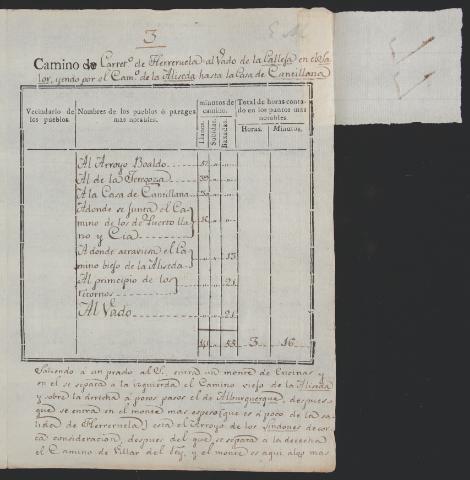 3
Camino de Carret.º de Herreruela al Vado de la Calleja en el Sa
lor, yendo por el Cam.º de la Aliseda hasta la Casa de Cantillana
Vecindario de los pueblos.
Nombres de los pueblos ó parages mas notables.
minutos de camino.
Llanos. Subidas. Baxadas.
Total de horas conta-
do en los puntos mas
notables.
Horas. Minutos.
Al Arroyo Boaldo
Al de la
A la Casa de Cantillana
Adonde se junta el Ca
mino de los de Puerto lla
no y Cia
A donde atraviesa el Ca 13
mino biejo de la Aliseda
Al principio de los 21
retornos
Al Vado 21
141 55 3 16
Saliendo á un prado al S. entra un monte de Encinas y
en el se separa á la izquierda el Camino viejo de la Aliseda
y sobre la derecha á pocos pasos el de Alburquerque, despues
que se entra en el monte mas espeso (que es á poco de la sa
lida de Herreruela) está el Arroyo de los Lindones de cor
ta consideracion, despues del que se separa á la derecha
el Camino de Villar del Rey, y el monte es aqui algo mas